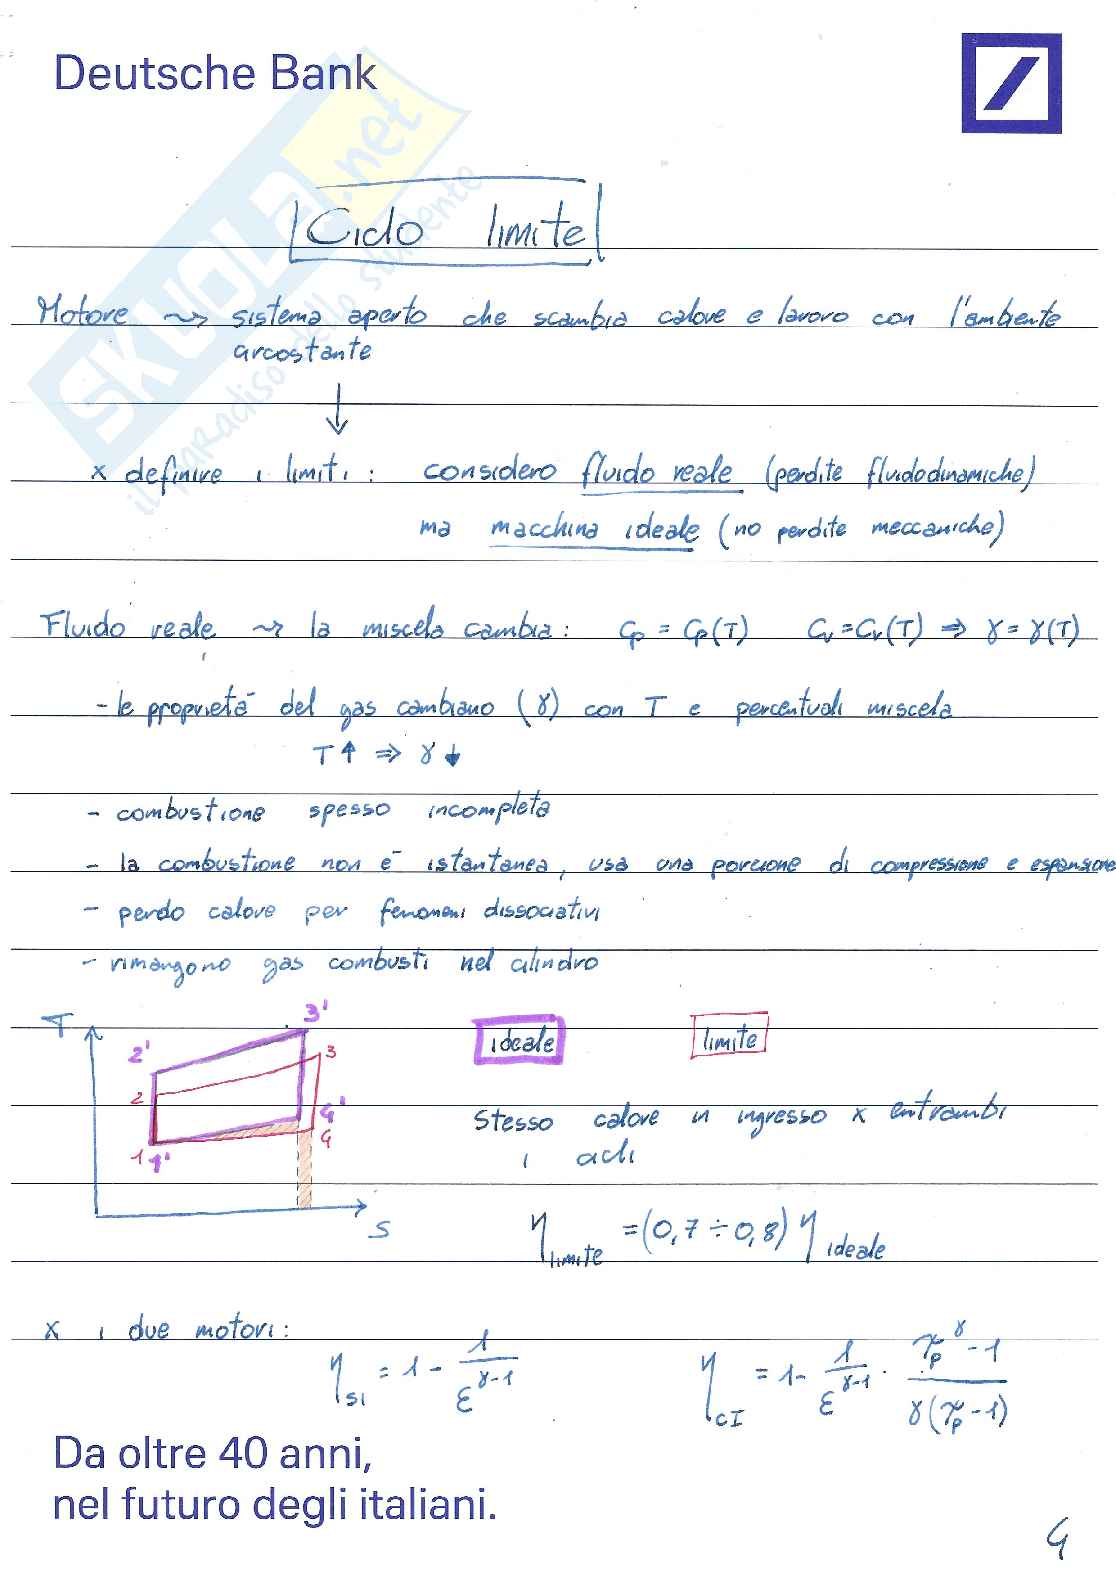 Deutsche Bank
SKUOLA.net
il paradiso dello studente
Ciclo limite
Motore ⤳ sistema aperto che scambia calore e lavoro con l'ambiente
circostante
↓
x definire i limiti : considero fluido reale (perdite fluidodinamiche)
ma macchina ideale (no perdite meccaniche)
Fluido reale ⤳ la miscela cambia : Cp = Cp(T) Cv = Cv(T) ⇒ γ = γ(T)
- le proprietà del gas cambiano (γ) con T e percentuali miscela
T↑ ⇒ γ↓
- combustione spesso incompleta
- la combustione non è istantanea, usa una porzione di compressione e espansione
- perdo calore per fenomeni dissociativi
- rimangono gas combusti nel cilindro
T
3'
2'
3
2
4'
4
1
1'
S
ideale
limite
Stesso calore in ingresso x entrambi
i cicli
η limite = (0,7 ÷ 0,8) η ideale
x i due motori :
η SI = 1 - 1/ε^(γ-1)
η CI = 1 - 1/ε^(γ-1) · (τp^γ - 1)/(γ(τp - 1))
Da oltre 40 anni,
nel futuro degli italiani.
4